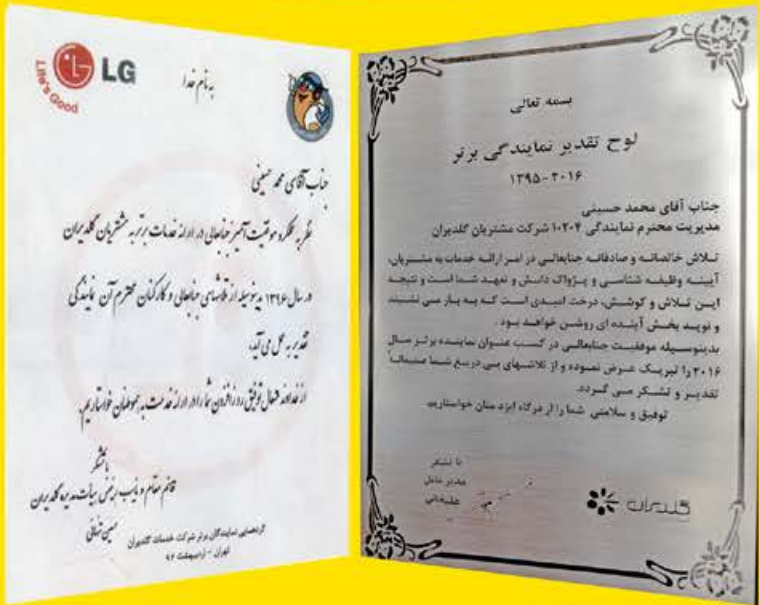 LG
Life's Good
به نام خدا
جناب آقای محمد حسینی
نظر به عملکرد موفقیت آمیز جنابعالی در ارائه خدمات برتر به مشتریان گلدیران
در سال ۱۳۹۶ بدینوسیله از تلاشهای جنابعالی و کارکنان محترم آن نمایندگی
تقدیر به عمل می آید.
از خداوند متعال توفیق روزافزون شما را در ارائه خدمت به هموطنان خواستاریم.
با تشکر
قائم مقام و نایب رئیس هیأت مدیره گلدیران
گردهمایی نمایندگان برتر شرکت خدمات گلدیران
تهران - اردیبهشت ۹۷
بسمه تعالی
لوح تقدیر نمایندگی برتر
۱۳۹۵-۲۰۱۶
جناب آقای محمد حسینی
مدیریت محترم نمایندگی ۱۰۲۰۴ شرکت مشتریان گلدیران
تلاش خالصانه و صادقانه جنابعالی در امر ارائه خدمات به مشتریان،
آیینه وظیفه شناسی و پژواک دانش و تعهد شما است و نتیجه
این تلاش و کوشش، درخت امیدی است که به بار می نشیند
و نوید بخش آینده ای روشن خواهد بود.
بدینوسیله موفقیت جنابعالی در کسب عنوان نماینده برتر سال
۲۰۱۶ را تبریک عرض نموده و از تلاشهای بی دریغ شما صمیمانه
تقدیر و تشکر می گردد.
توفیق و سلامتی شما را از درگاه ایزد منان خواستاریم.
با تشکر
مدیر عامل
علیخانی
گلدیران